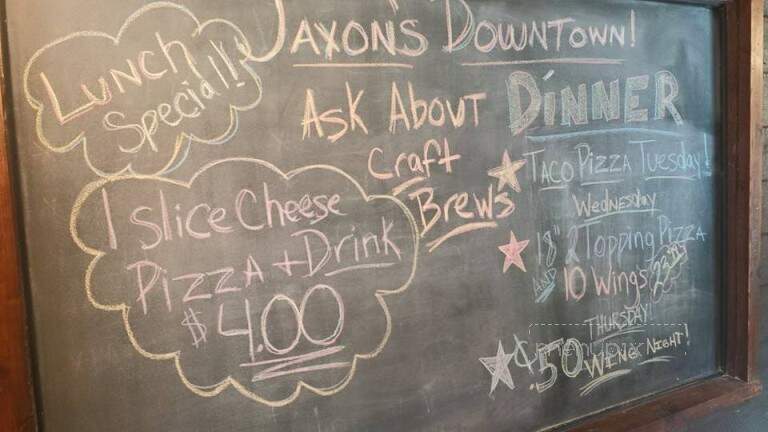 Jaxon's Downtown!
Lunch
Special!!
1 slice Cheese
Pizza + Drink
$4.00
Ask About
Craft
Brews
Dinner
Taco Pizza Tuesday!
Wednesday
18" 2 Topping Pizza
AND 10 Wings
Thursday!
¢.50 Wing Night!